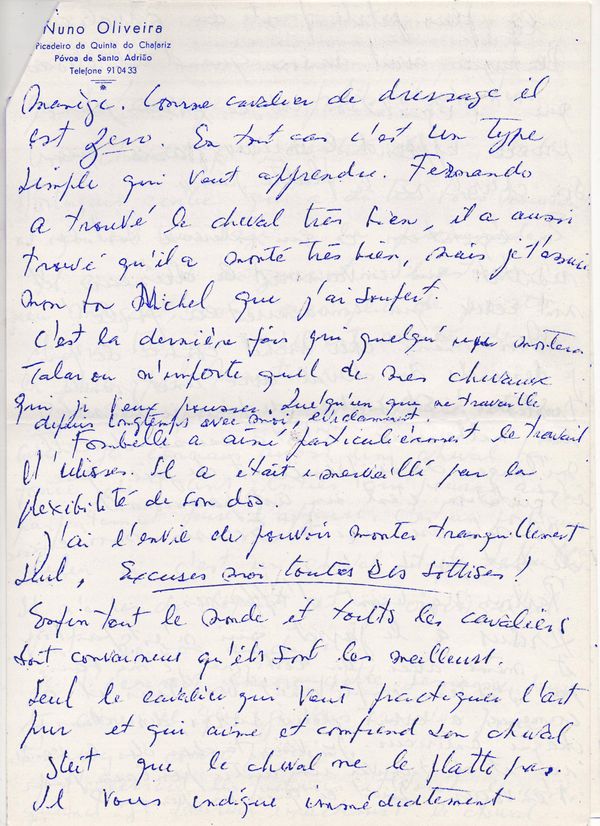 Nuno Oliveira
Picadeiro da Quinta do Chafariz
Póvoa de Santo Adrião
Telefone 91 04 33
manège. Comme cavalier de dressage il
est zero. En tout cas c'est un type
simple qui veut apprendre. Fernando
a trouvé le cheval très bien, il a aussi
trouvé qu'il a monté très bien, mais je t'assure
mon bon Michel que j'ai soufert.
C'est la dernière fois qui quelqu'un montera
Talar ou n'importe quel de mes chevaux
qui je veux pousser. Quelqu'un que ne travaille
depuis longtemps avec moi, evidament.
Fombelle a aimé particulièrement le travail
d'Ulisses. Il a était emerveillé par la
flexibilité de son dos.
J'ai l'envie de pouvoir monter tranquillement
seul, Excuses moi toutes ces sottises!
Enfin tout le monde et touts les cavaliers
sont convaincus qu'éls sont les meilleurs.
Seul le cavalier qui veut practiquer l'art
pur et qui aime et comprend son cheval
que le cheval ne le flatte pas.
Il vous indique immédiatement